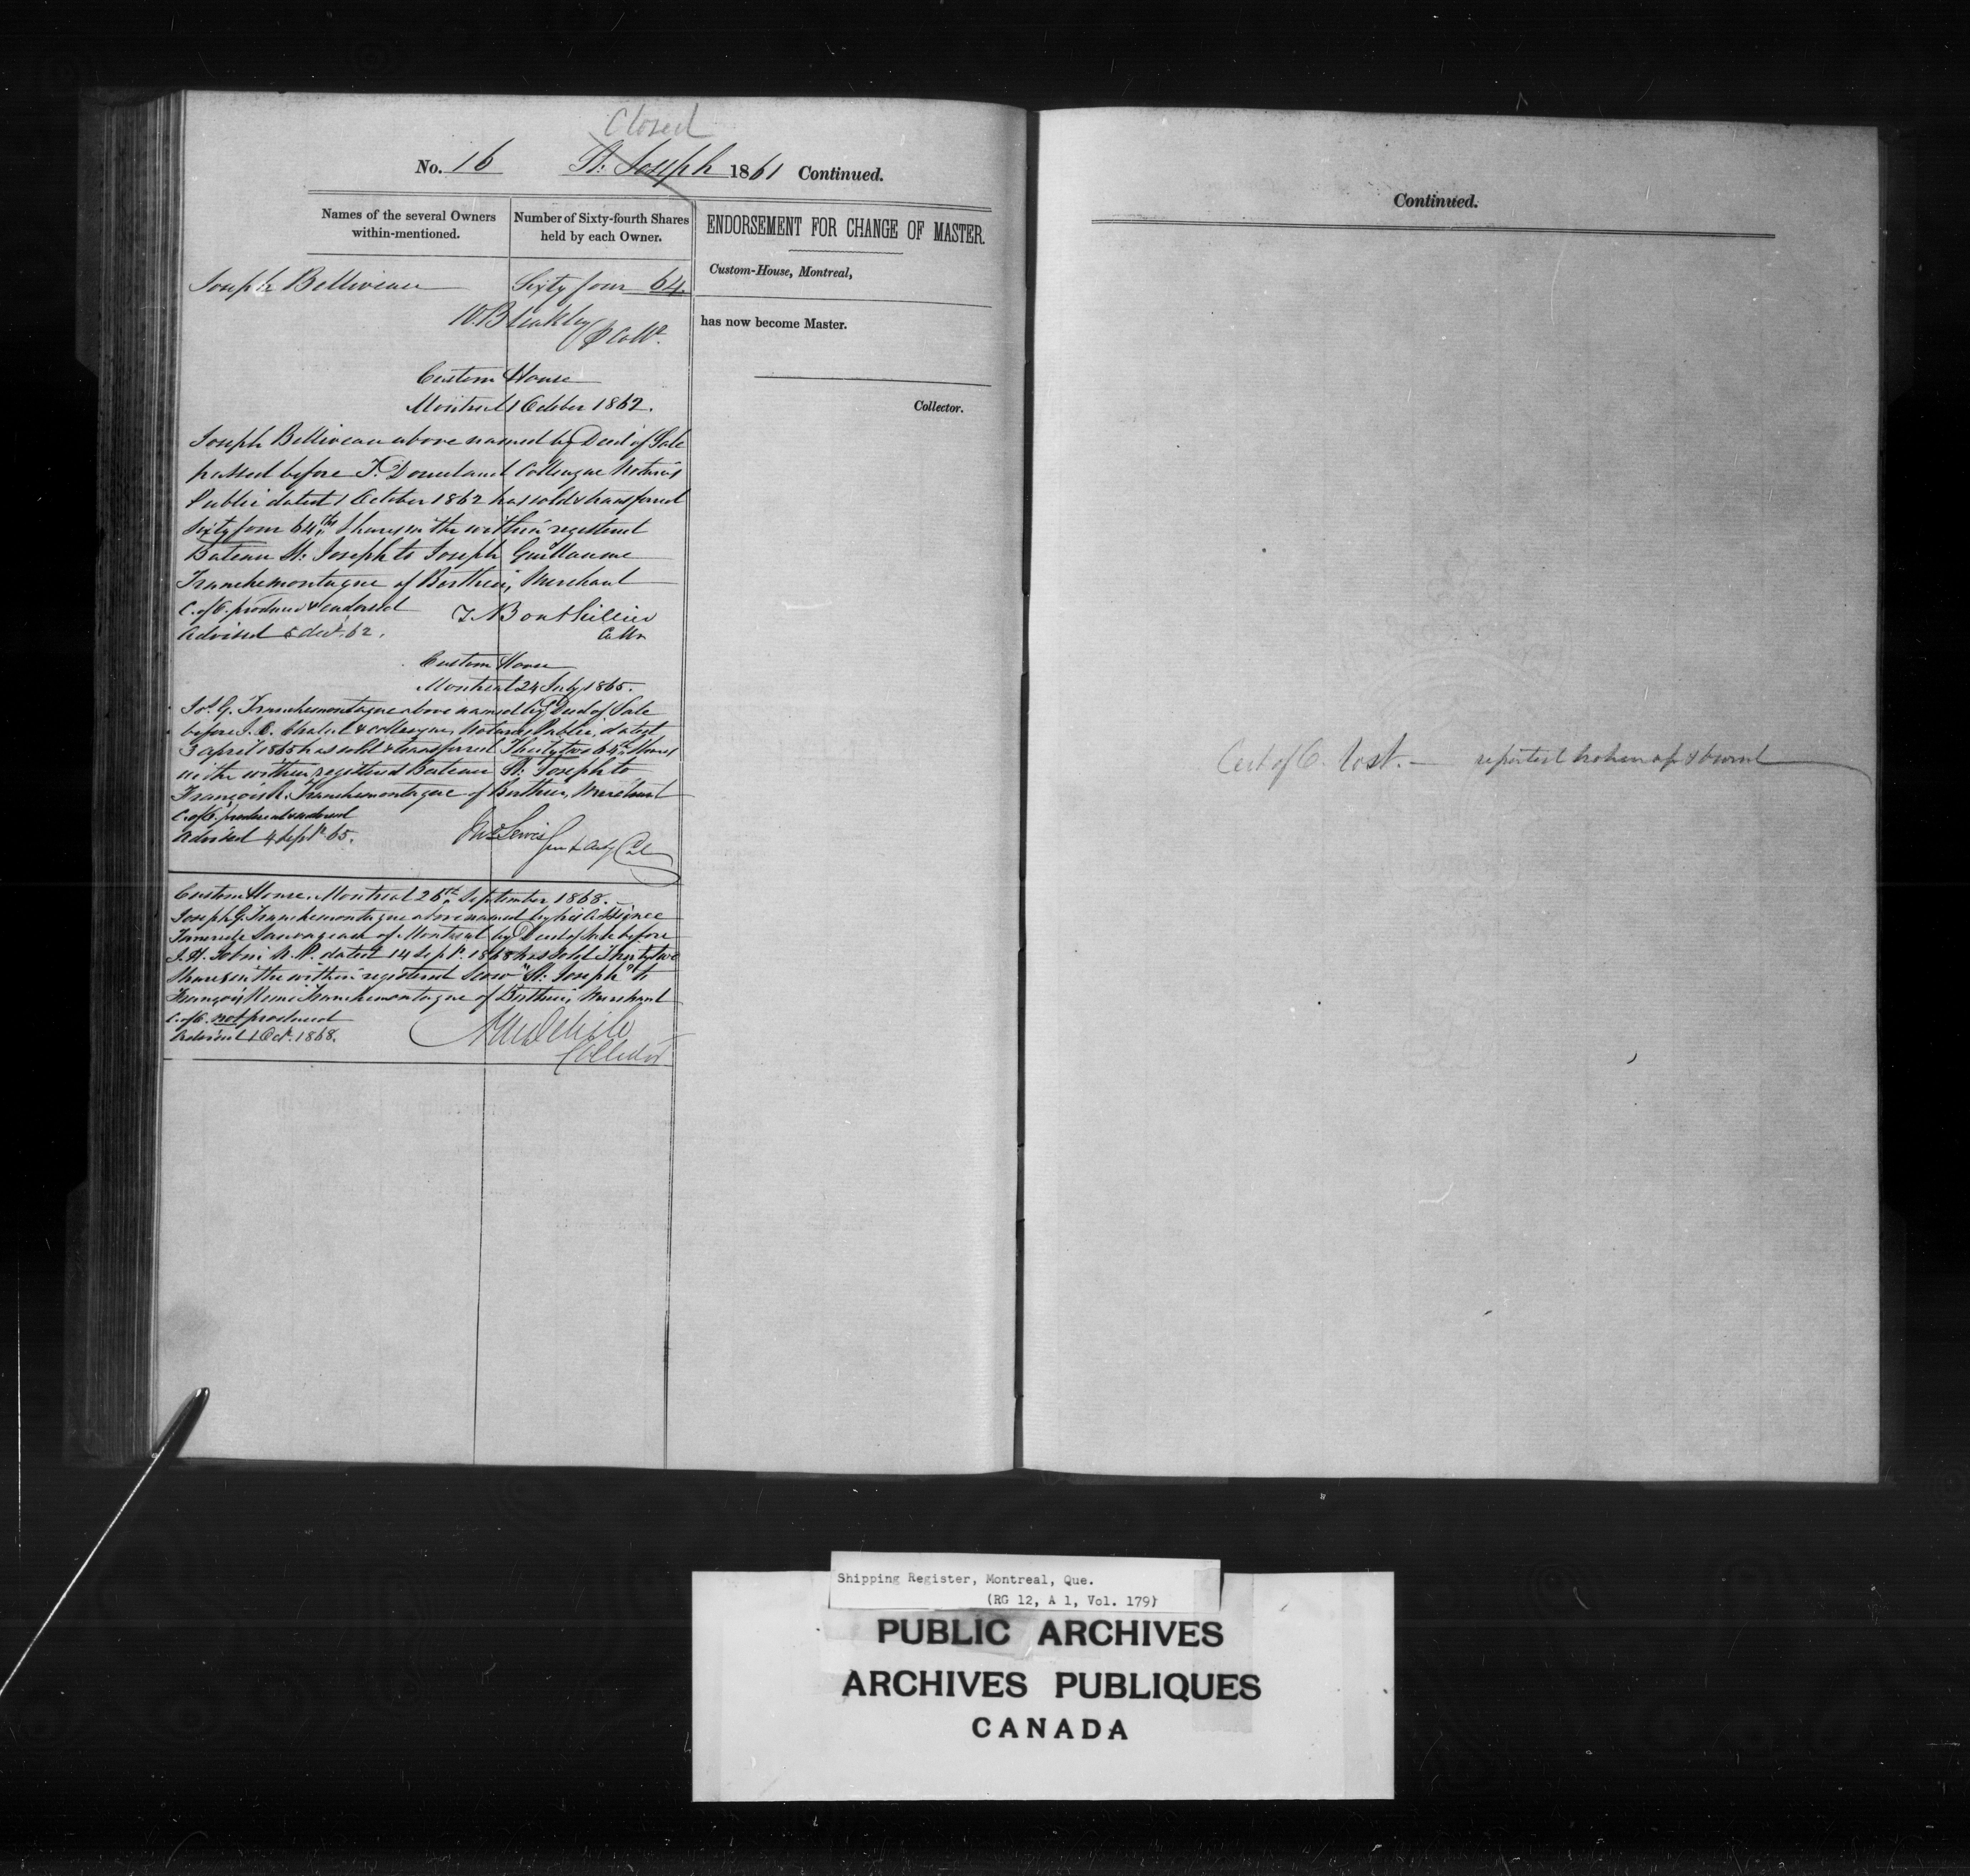 Closed
No. 16 St. Joseph 1861 Continued.
Names of the several Owners within-mentioned.
Number of Sixty-fourth Shares held by each Owner.
Joseph Belliveau Sixty four 64.
W. Bleakley
Custom House
Montreal 1 October 1862.
Joseph Belliveau above named by Deed of Sale
passed before T. and Colleague Notaries
Public dated 1 October 1862 has sold & transferred
Sixty four 64ths Shares in the within registered
Bateau St. Joseph to Joseph Guillaume
Tranchemontagne of Berthier, Merchant
C. of O. produced & endorsed
Advised 5 dect. 62.
T Bouthillier
Collr
Custom House
Montreal 24 July 1865.
Jos. G. Tranchemontagne above named by Deed of Sale
before & colleague, Notaries Public, dated
3 April 1865 has sold & transferred Thirty two 64th Shares
in the within registered Bateau St. Joseph to
François R. Tranchemontagne of Berthier, Merchant
C. of O. produced & endorsed
Advised 4 Sept. 65.
Jno Lewis
Custom House. Montreal 26th September 1868.
Joseph G. Tranchemontagne above named by his Assignee
Tancrede Sauvageau of Montreal by Deed of Sale before
N. P. dated 14 Sept. 1868 has sold Thirty two
Shares in the within registered Scow "St. Joseph" to
François Remi Tranchemontagne of Berthier, Merchant
C. of O. not produced
Advised 1 Oct. 1868.
Collector
ENDORSEMENT FOR CHANGE OF MASTER.
Custom-House, Montreal,
has now become Master.
Collector.
Continued.
Cert of O. lost. — reported broken up & burnt
Shipping Register, Montreal, Que.
(RG 12, A 1, Vol. 179)
PUBLIC ARCHIVES
ARCHIVES PUBLIQUES
CANADA